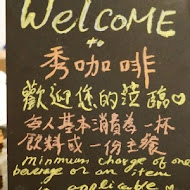 WelCOME
to
秀咖啡
歡迎您的蒞臨
每人基本消費為一杯
飲料或一份主餐
minimum charge of one
beverage or an item
is applicable